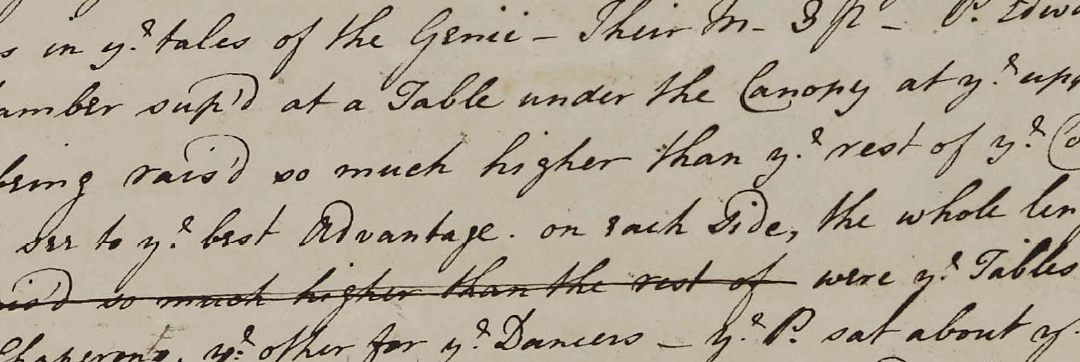 s in y.e tales of the Genii - Their M- & P- P. Edwa
amber sup'd at a Table under the Canopy at y.e upp
being rais'd so much higher than y.e rest of y.e Co
see to y.e best Advantage. on each Side, the whole len
ais'd so much higher than the rest of were y.e Tables
Chaperons, y.e other for y.e Dancers - y.e P. sat about y.